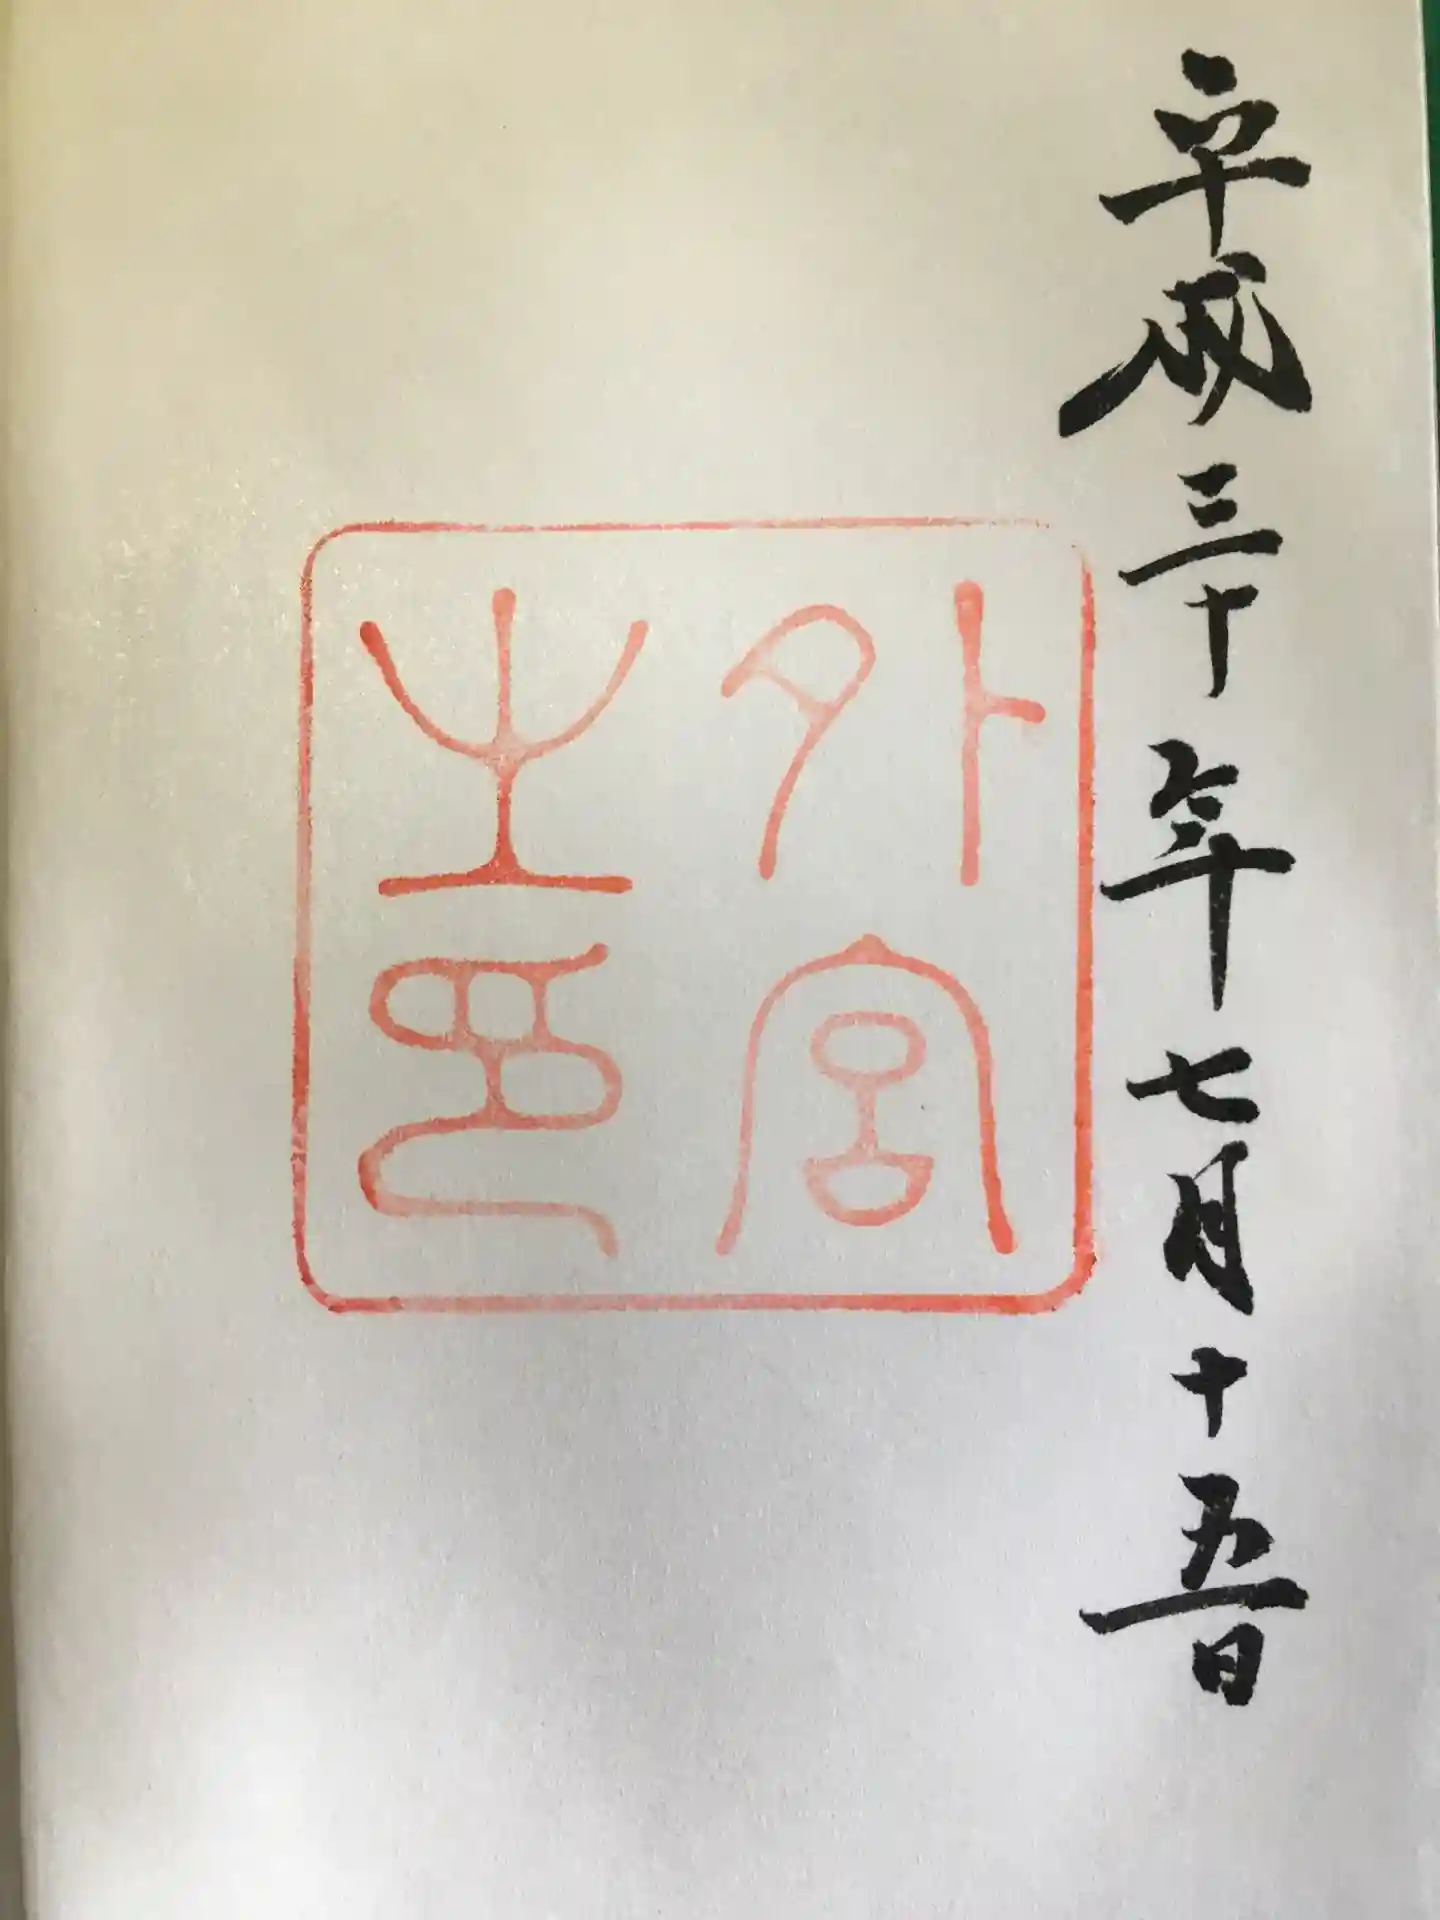 平成三十年七月十五日
外宮
之印